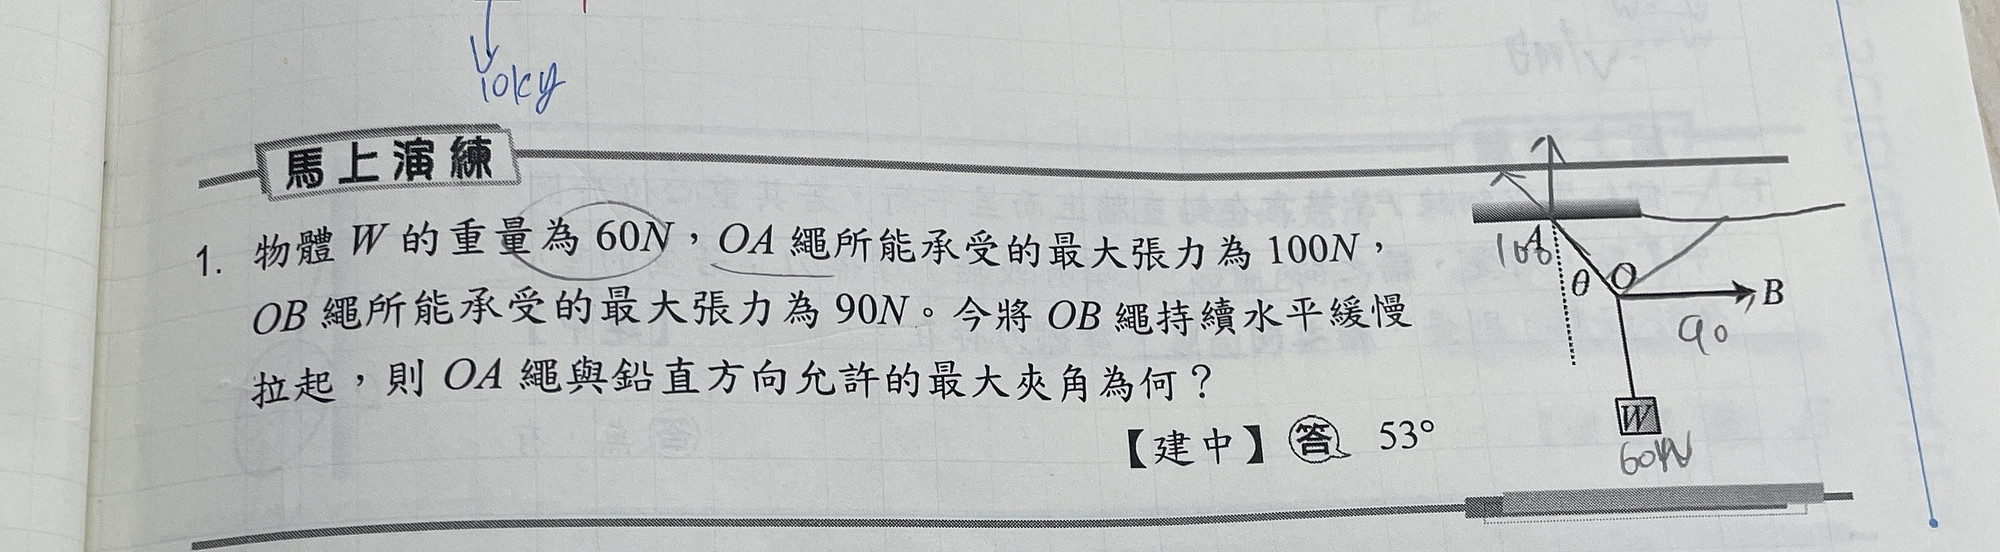 10kg
馬上演練
1. 物體 W 的重量為 60N，OA 繩所能承受的最大張力為 100N，
OB 繩所能承受的最大張力為 90N。今將 OB 繩持續水平緩慢
拉起，則 OA 繩與鉛直方向允許的最大夾角為何？
【建中】答 53°
100
A
θ
O
B
90
W
60N